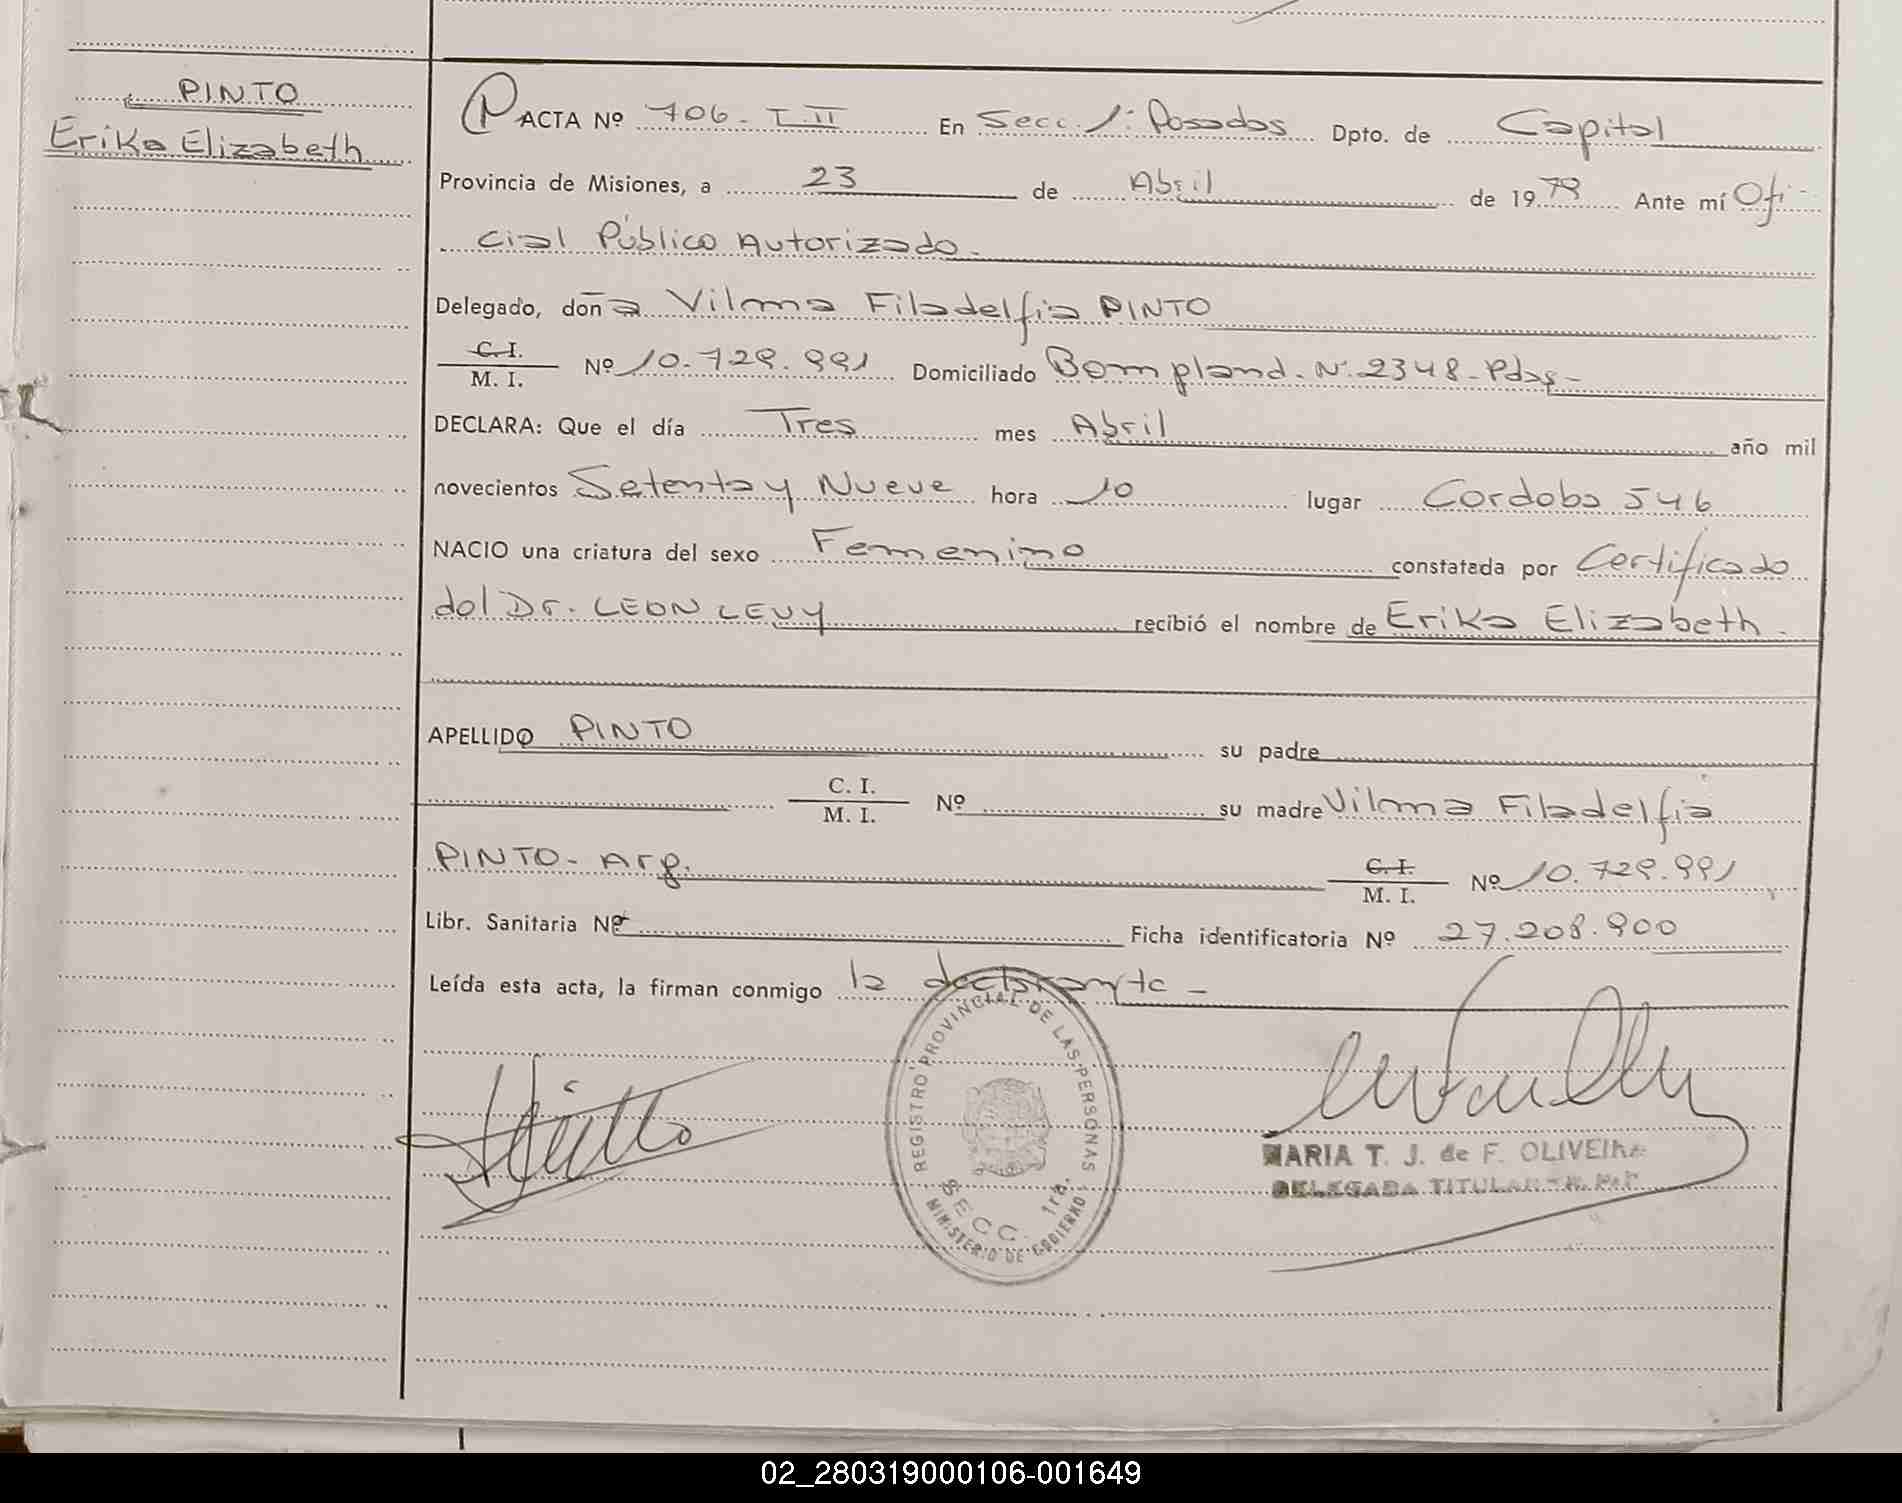 PINTO
Erika Elizabeth
ACTA Nº 706 - T.II En Secc. 1ª: Posadas Dpto. de Capital
Provincia de Misiones, a 23 de Abril de 1979 Ante mí Ofi-
cial Público Autorizado.
Delegado, doña Vilma Filadelfia PINTO
C. I. / M. I. Nº 10.729.991 Domiciliado Bompland. Nº 2348 - Pdas -
DECLARA: Que el día Tres mes Abril año mil
novecientos Setenta y Nueve hora 10 lugar Cordoba 546
NACIO una criatura del sexo Femenino constatada por Certificado
del Dr. LEON LEVY recibió el nombre de Erika Elizabeth.
APELLIDO PINTO su padre
C. I. / M. I. Nº su madre Vilma Filadelfia
PINTO - Arg. C. I. / M. I. Nº 10.729.991
Libr. Sanitaria Nº Ficha identificatoria Nº 27.208.900
Leída esta acta, la firman conmigo la declarante -
REGISTRO PROVINCIAL DE LAS PERSONAS
SECC. 1ra.
MINISTERIO DE GOBIERNO
MARIA T. J. de F. OLIVEIRA
DELEGADA TITULAR
02_280319000106-001649